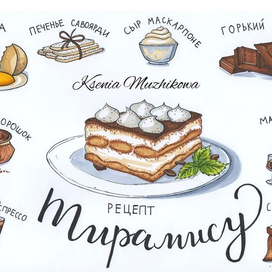 ПЕЧЕНЬЕ САВОЯРДИ
СЫР МАСКАРПОНЕ
ГОРЬКИЙ
Ksenia Muzhikova
РЕЦЕПТ
Тирамису